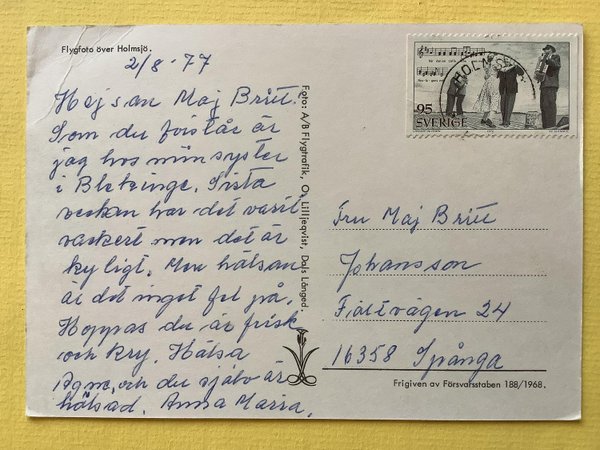 Flygfoto över Holmsjö.
2/8-77
Hejsan Maj Britt.
Som du förstår är
jag hos min syster
i Blekinge. Sista
veckan har det varit
vackert men det är
kyligt. Men hälsan
är det inget fel på.
Hoppas du är frisk
och kry. Hälsa
och du själv är
hälsad. Anna Maria.
Foto: A/B Flygtrafik, O. Lilljeqvist, Dals Långed
HOLMSJÖ
95
SVERIGE
Fru Maj Britt
Johansson
Fjällvägen 24
16358 Spånga
Frigiven av Försvarsstaben 188/1968.